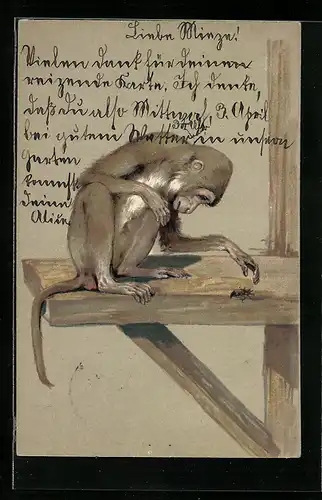 Liebe Mieze!
Vielen Dank für deinen
reizende Karte. Ich denke,
daß du also Mittwoch, 3. April
bei gutem Wetter in unsern
Garten
kommst
deine
Alice